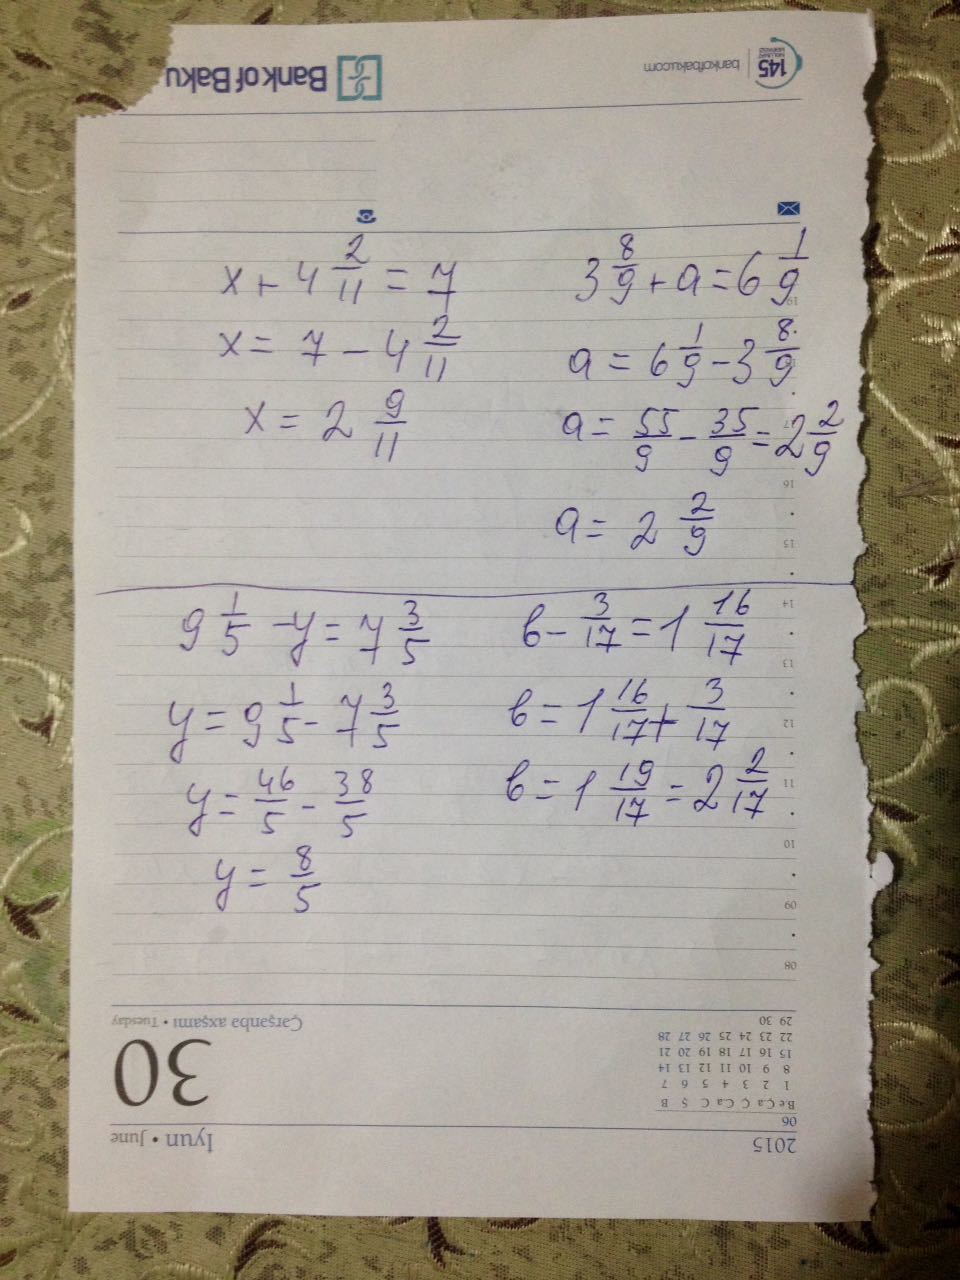 Bank of Baku
bankofbaku.com
145
x + 4 2/11 = 7
x = 7 - 4 2/11
x = 2 9/11
3 8/9 + a = 6 1/9
a = 6 1/9 - 3 8/9
a = 55/9 - 35/9 = 2 2/9
a = 2 2/9
9 1/5 - y = 7 3/5
y = 9 1/5 - 7 3/5
y = 46/5 - 38/5
y = 8/5
b - 3/17 = 1 16/17
b = 1 16/17 + 3/17
b = 1 19/17 = 2 2/17
19
17
16
15
14
13
12
11
10
09
08
Çərşənbə axşamı • Tuesday
30
İyun • June
2015
06
B.e Ç.a Ç C.a C Ş B
1 2 3 4 5 6 7
8 9 10 11 12 13 14
15 16 17 18 19 20 21
22 23 24 25 26 27 28
29 30